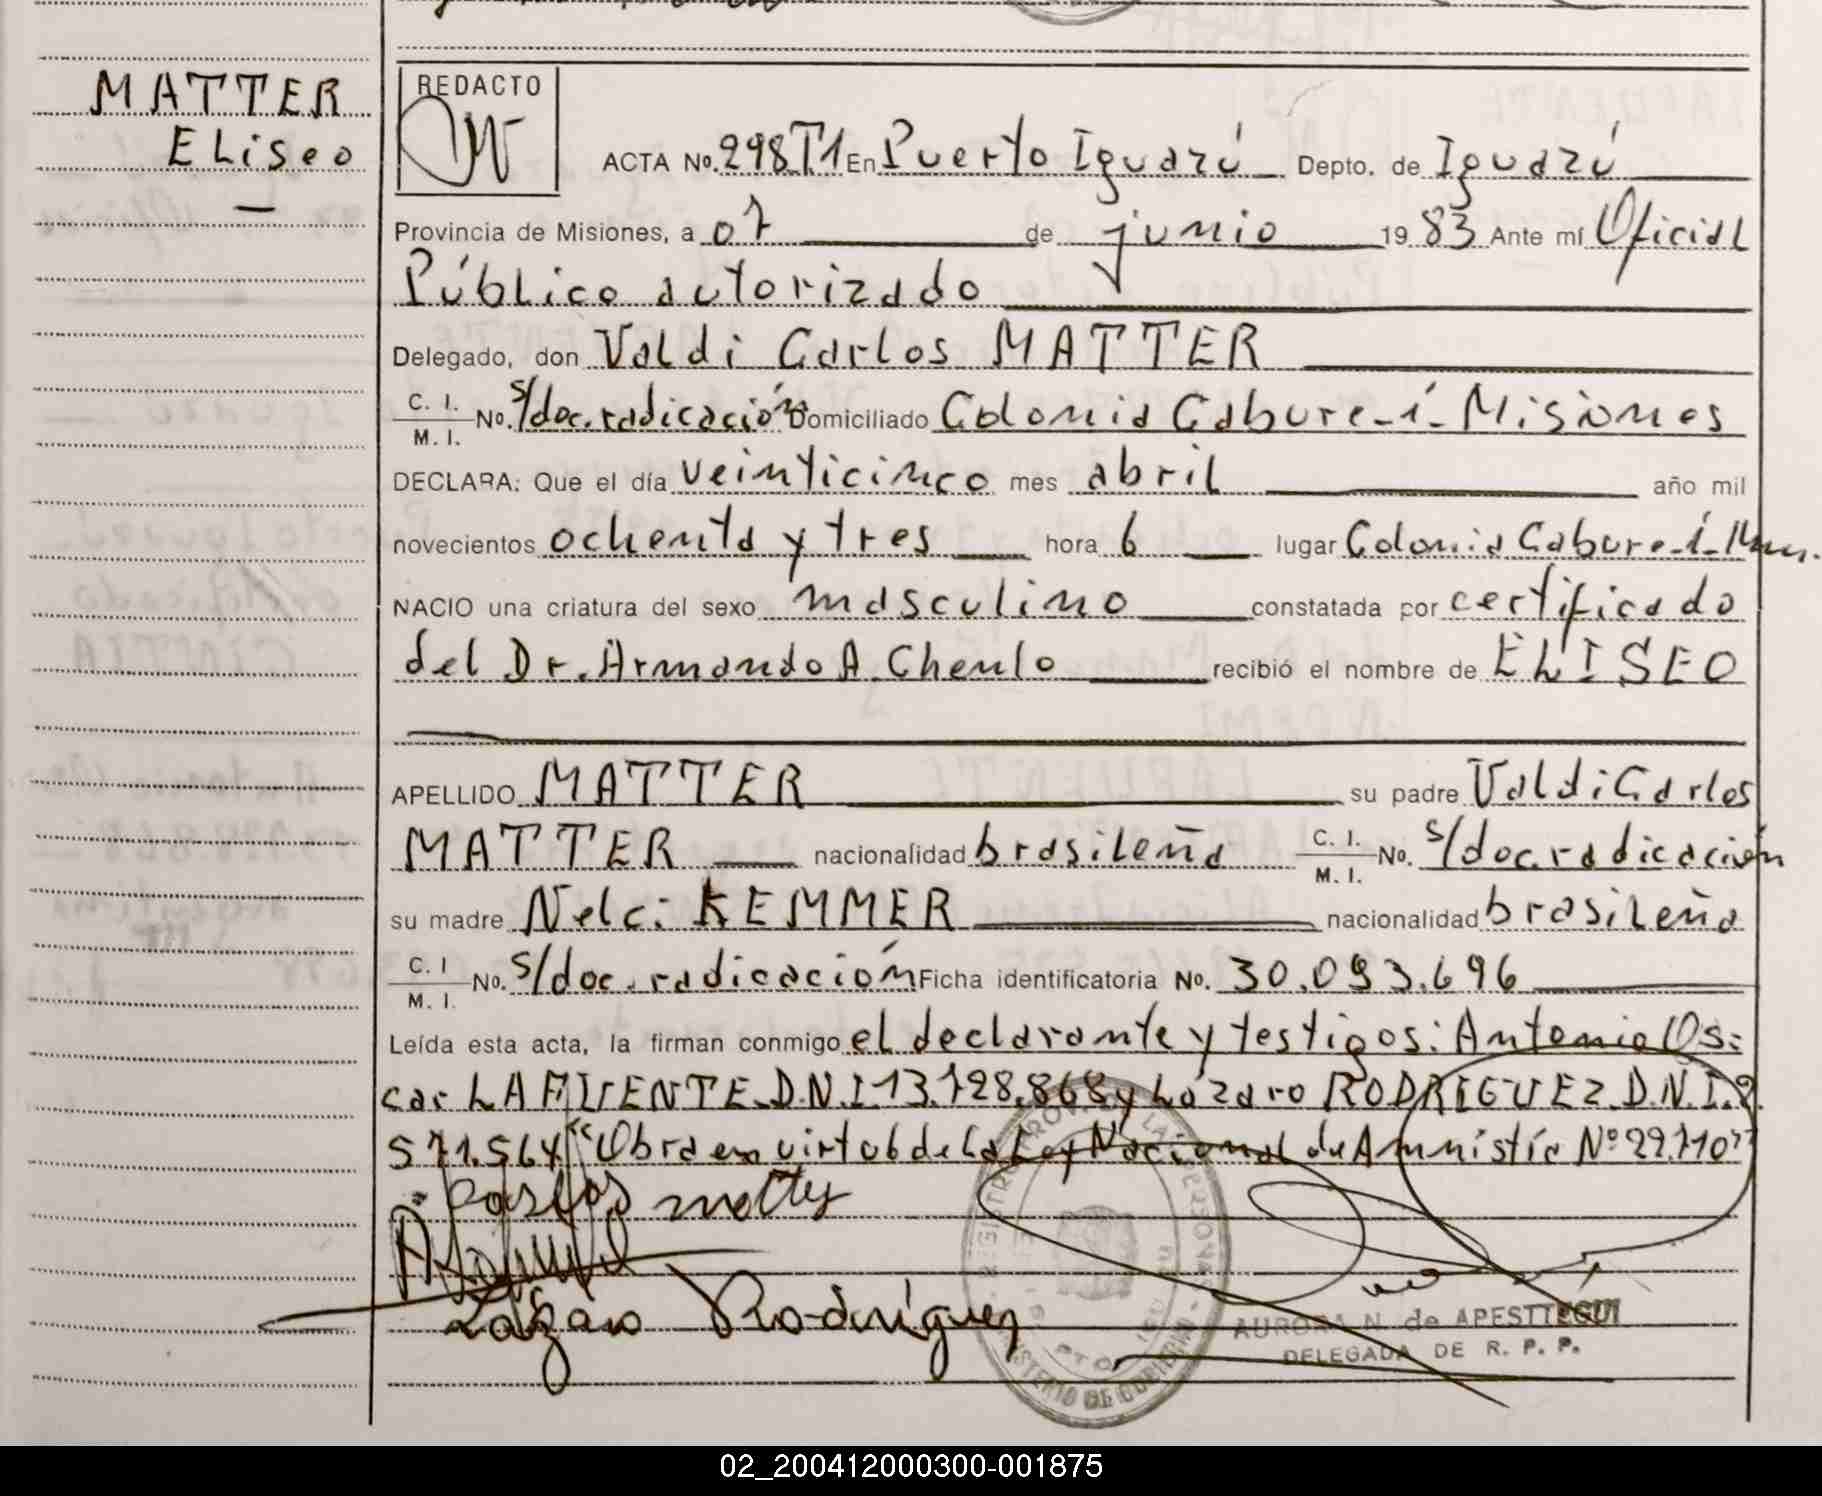 MATTER
ELiseo
REDACTO
ACTA No. 298T1 En Puerto Iguazú Depto. de Iguazú
Provincia de Misiones, a 07 de junio 19 83 Ante mí Oficial
Público autorizado
Delegado, don Valdi Carlos MATTER
C. I. M. I. No. s/doc. radicación Domiciliado Colonia Cabure-í-Misiones
DECLARA: Que el día veinticinco mes abril año mil
novecientos ochenta y tres hora 6 lugar Colonia Cabure-í-Mnes.
NACIO una criatura del sexo masculino constatada por certificado
del Dr. Armando A. Chenlo recibió el nombre de ELISEO
APELLIDO MATTER su padre Valdi Carlos
MATTER nacionalidad brasileña C. I. M. I. No. s/doc. radicación
su madre Nelci KEMMER nacionalidad brasileña
C. I M. I. No. s/doc. radicación Ficha identificatoria No. 30.093.696
Leída esta acta, la firman conmigo el declarante y testigos: Antonio Os-
car LAFUENTE D.N.I 13.728.868 y Lázaro RODRIGUEZ D.N.I.
571.564 "Obra en virtud de la Ley Nacional de Amnistía Nº 22.110"
Lázaro Rodríguez
AURORA N. de APESTTEGUI
DELEGADA DE R. P. P.
MINISTERIO DE GOBIERNO
02_200412000300-001875